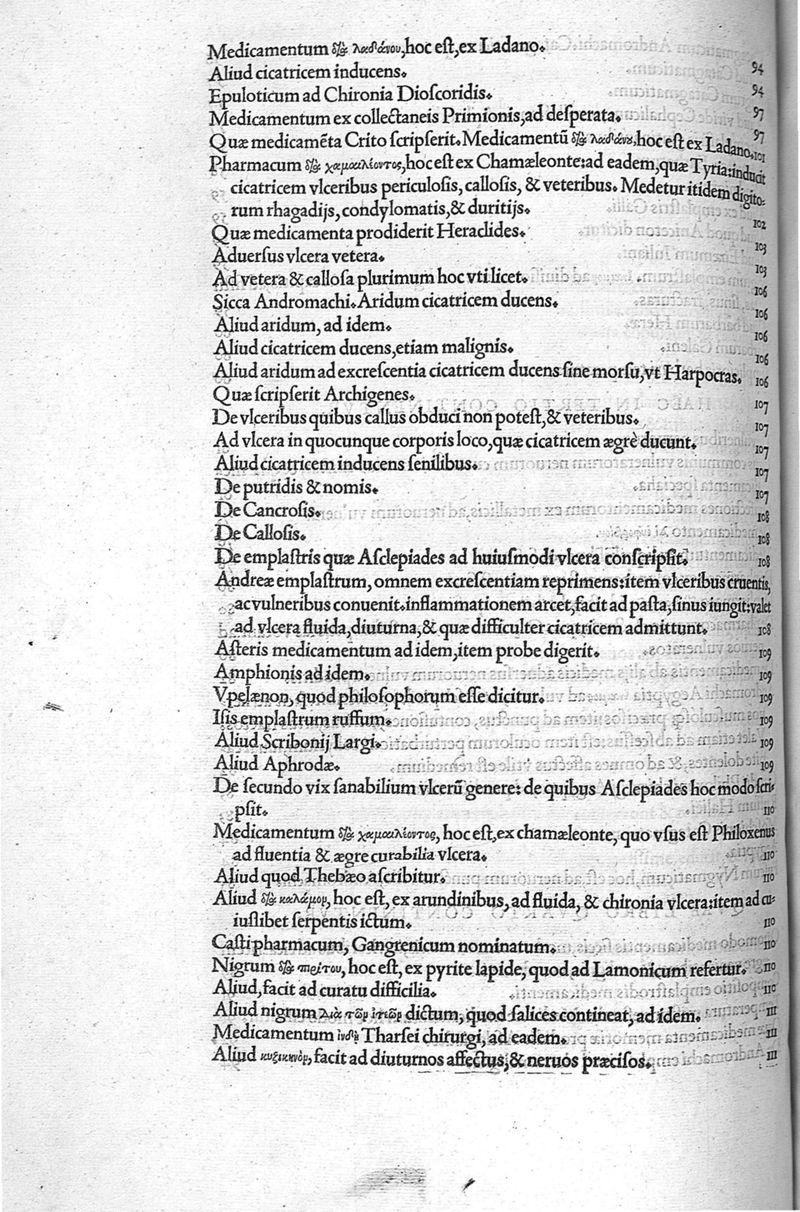 Medicamentum διὰ λαδάνου, hoc eſt, ex Ladano. 94
Aliud cicatricem inducens. 94
Epuloticum ad Chironia Dioſcoridis. 97
Medicamentum ex collectaneis Primionis, ad deſperata. 97
Quæ medicamēta Crito ſcripſerit. Medicamentū διὰ λαδάνȣ, hoc eſt ex Ladano. 101
Pharmacum διὰ χαμαιλέοντος, hoc eſt ex Chamæleonte: ad eadem, quæ Tyria: inducit
cicatricem vlceribus periculoſis, calloſis, & veteribus. Medetur itidem digito-
rum rhagadijs, condylomatis, & duritijs. 102
Quæ medicamenta prodiderit Heraclides. 103
Aduerſus vlcera vetera. 103
Ad vetera & calloſa plurimum hoc vti licet. 106
Sicca Andromachi. Aridum cicatricem ducens. 106
Aliud aridum, ad idem. 106
Aliud cicatricem ducens, etiam malignis. 106
Aliud aridum ad excreſcentia cicatricem ducens ſine morſu, vt Harpocras. 106
Quæ ſcripſerit Archigenes. 107
De vlceribus quibus callus obduci non poteſt, & veteribus. 107
Ad vlcera in quocunque corporis loco, quæ cicatricem ægrè ducunt. 107
Aliud cicatricem inducens ſenilibus. 107
De putridis & nomis. 107
De Cancroſis. 108
De Calloſis. 108
De emplaſtris quæ Aſclepiades ad huiuſmodi vlcera conſcripſit. 108
Andreæ emplaſtrum, omnem excreſcentiam reprimens: item vlceribus cruentis,
ac vulneribus conuenit. inflammationem arcet, facit ad paſta, ſinus iungit: valet
ad vlcera fluida, diuturna, & quæ difficulter cicatricem admittunt. 108
Aſteris medicamentum ad idem, item probe digerit. 109
Amphionis ad idem. 109
Vpelænon, quod philoſophorum eſſe dicitur. 109
Iſis emplaſtrum ruffum. 109
Aliud Scribonij Largi. 109
Aliud Aphrodæ. 109
De ſecundo vix ſanabilium vlcerū genere: de quibus Aſclepiades hoc modo ſcri-
pſit. 110
Medicamentum διὰ χαμαιλέοντος, hoc eſt, ex chamæleonte, quo vſus eſt Philoxenus
ad fluentia & ægre curabilia vlcera. 110
Aliud quod Thebæo aſcribitur. 110
Aliud διὰ καλάμων, hoc eſt, ex arundinibus, ad fluida, & chironia vlcera: item ad cu-
iuſlibet ſerpentis ictum. 110
Caſti pharmacum, Gangrenicum nominatum. 110
Nigrum διὰ πυρίτου, hoc eſt, ex pyrite lapide, quod ad Lamonicum refertur. 110
Aliud, facit ad curatu difficilia. 110
Aliud nigrum διὰ τῶν ἰτεῶν dictum, quod ſalices contineat, ad idem. 111
Medicamentum ἰνδὴ Tharſei chirurgi, ad eadem. 111
Aliud κυζικηνόν, facit ad diuturnos affectus, & neruos præciſos. 111